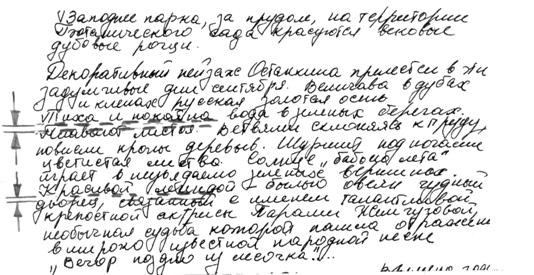 Западнее парка, за прудом, на территории
Ботанического сада красуются вековые
дубовые рощи.
Декоративный пейзаж Останкина прелестен в
задумчивые дни сентября. Величава в дубах
и кленах русская золотая осень
Тиха и покойна вода в зеленых берегах.
листы. Ветвями склоняясь к пруду,
повисли кроны деревьев. Шуршит под ногами
цветистая листва. Солнце „бабьего лета"
играет в неувядаемо зеленых вершинах.
Красивой легендой - былью овеян чудный
дворец, связанный с именем талантливой
крепостной актрисы Параши Жемчуговой,
необычная судьба которой нашла отражение
в широко известной народной песне
„Вечор поздно из лесочка"...